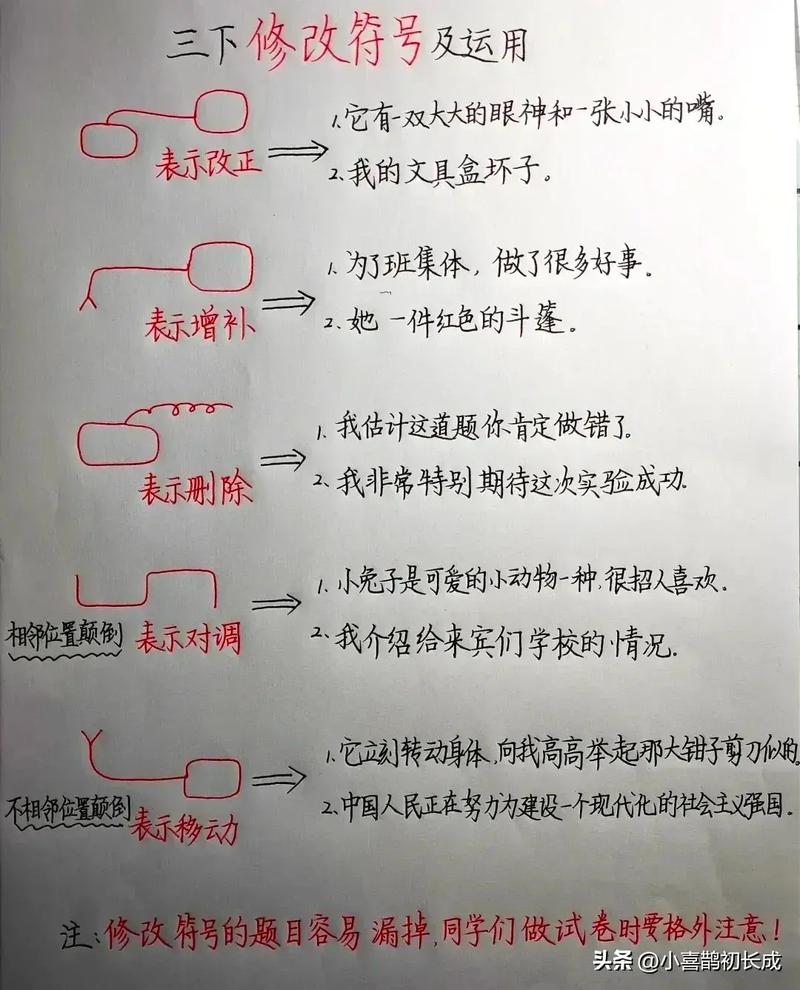 三下修改符号及运用
表示改正
1.它有一双大大的眼神和一张小小的嘴。
2.我的文具盒坏子。
表示增补
1.为了班集体，做了很多好事。
2.她一件红色的斗篷。
表示删除
1.我估计这道题你肯定做错了。
2.我非常特别期待这次实验成功.
相邻位置颠倒 表示对调
1.小兔子是可爱的小动物一种,很招人喜欢.
2.我介绍给来宾们学校的情况.
不相邻位置颠倒 表示移动
1.它立刻转动身体,向我高高举起那大钳子剪刀似的。
2.中国人民正在努力为建设一个现代化的社会主义强国.
注:修改符号的题目容易漏掉,同学们做试卷时要格外注意!
头条 @小喜鹊初长成